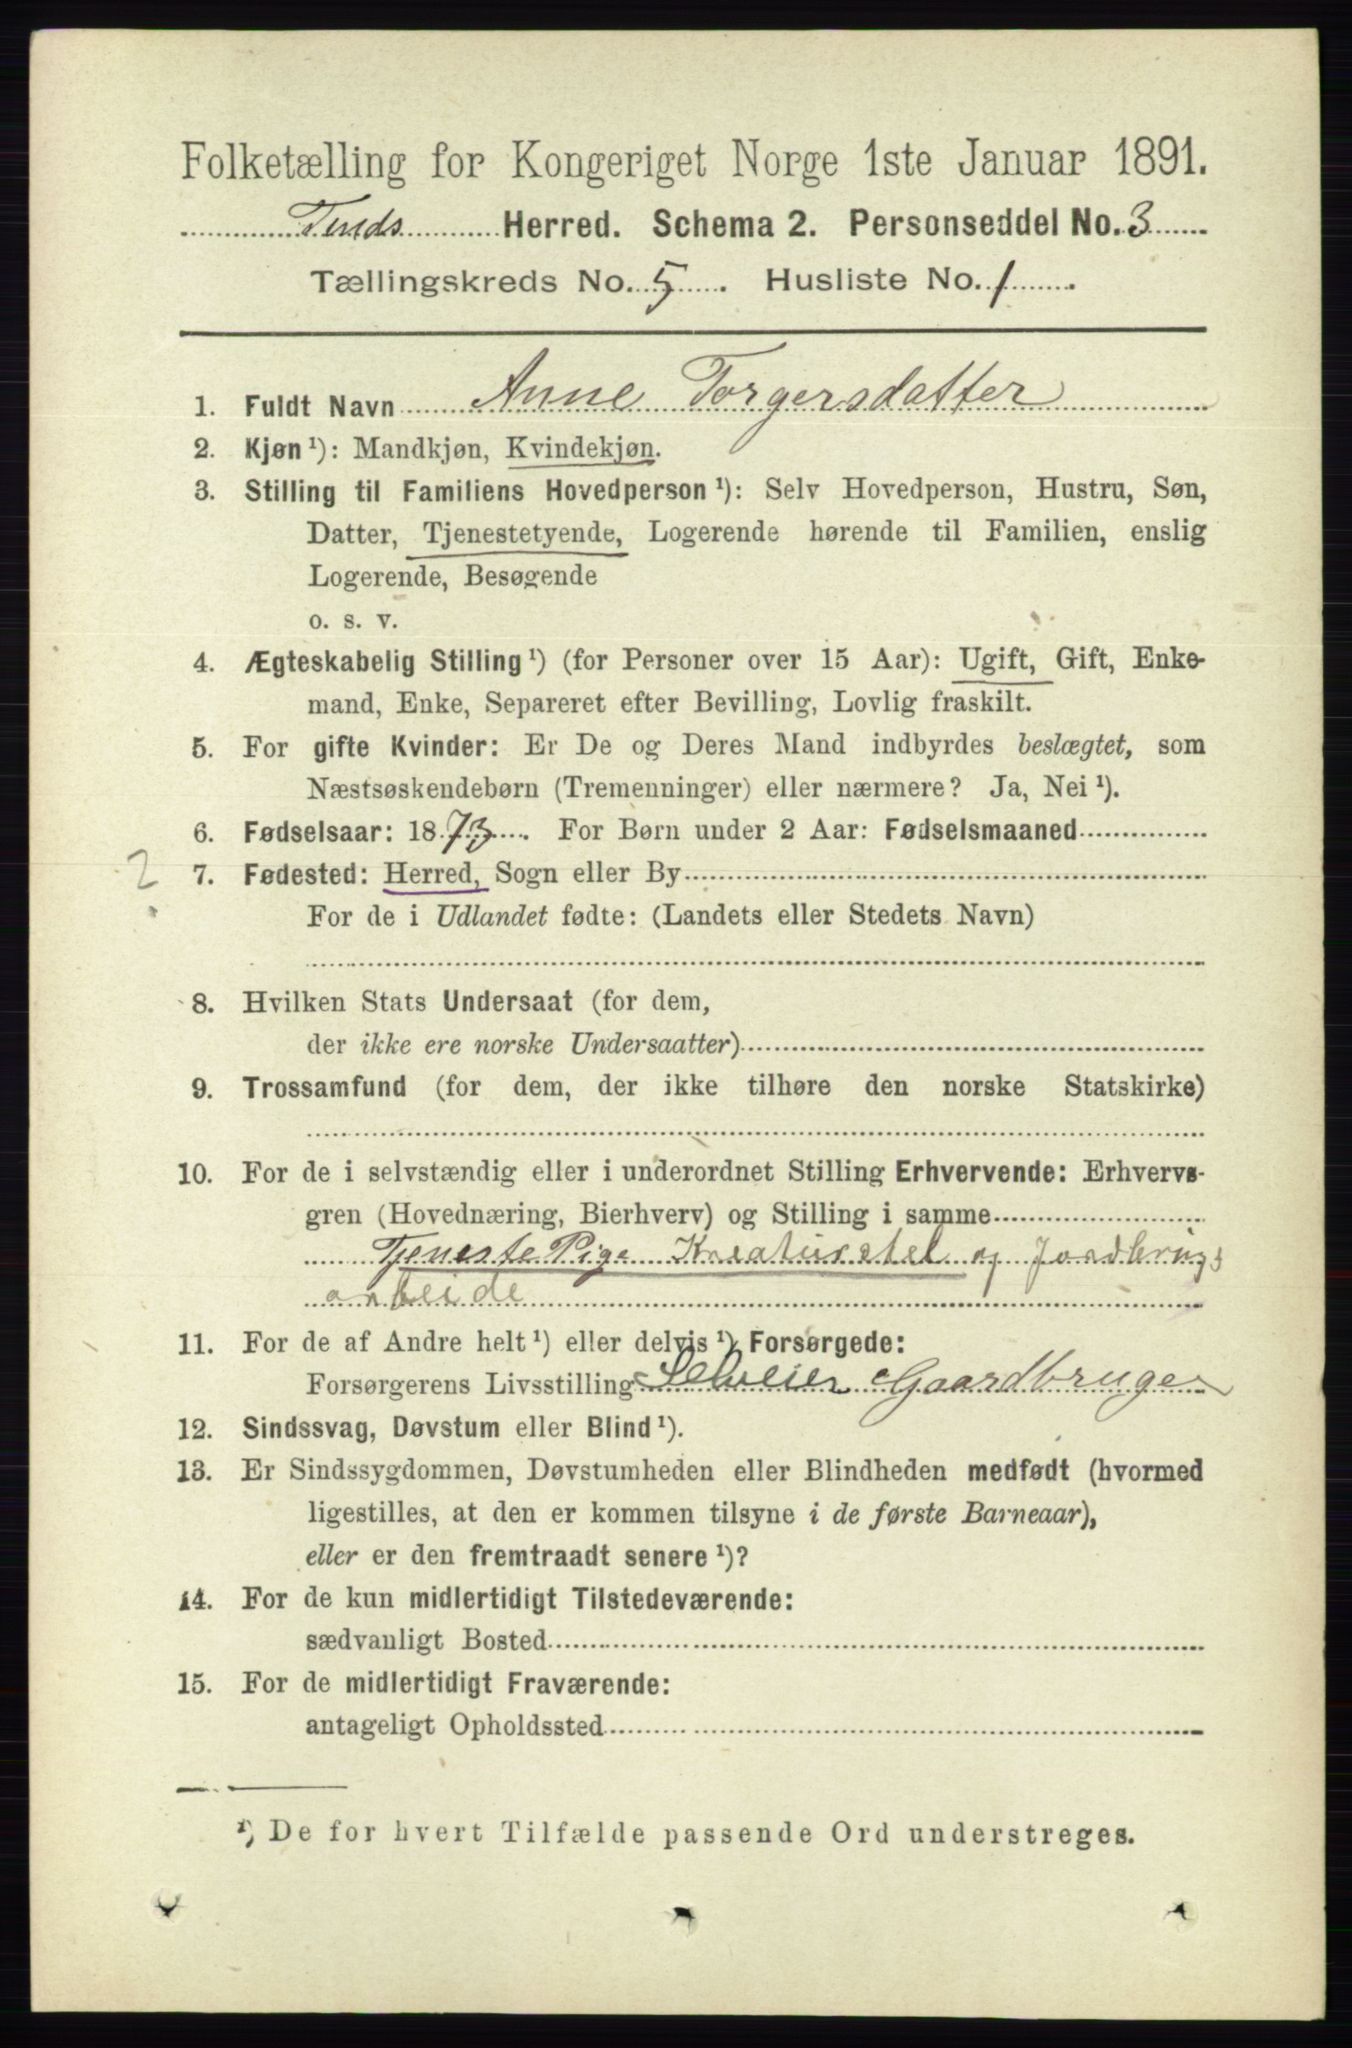 Folketælling for Kongeriget Norge 1ste Januar 1891.
Tinds Herred. Schema 2. Personseddel No. 3
Tællingskreds No. 5. Husliste No. 1.
1. Fuldt Navn Anne Torgersdatter
2. Kjøn ¹): Mandkjøn, Kvindekjøn.
3. Stilling til Familiens Hovedperson ¹): Selv Hovedperson, Hustru, Søn,
Datter, Tjenestetyende, Logerende hørende til Familien, enslig
Logerende, Besøgende
o. s. v.
4. Ægteskabelig Stilling ¹) (for Personer over 15 Aar): Ugift, Gift, Enke-
mand, Enke, Separeret efter Bevilling, Lovlig fraskilt.
5. For gifte Kvinder: Er De og Deres Mand indbyrdes beslægtet, som
Næstsøskendebørn (Tremenninger) eller nærmere? Ja, Nei ¹).
6. Fødselsaar: 1873. For Børn under 2 Aar: Fødselsmaaned
? 7. Fødested: Herred, Sogn eller By
For de i Udlandet fødte: (Landets eller Stedets Navn)
8. Hvilken Stats Undersaat (for dem,
der ikke ere norske Undersaatter)
9. Trossamfund (for dem, der ikke tilhøre den norske Statskirke)
10. For de i selvstændig eller i underordnet Stilling Erhvervende: Erhvervs-
gren (Hovednæring, Bierhverv) og Stilling i samme
Tjeneste Pige Kreaturstel og Jordbrugs
arbeide
11. For de af Andre helt ¹) eller delvis ¹) Forsørgede:
Forsørgerens Livsstilling Selveier Gaardbruger
12. Sindssvag, Døvstum eller Blind ¹).
13. Er Sindssygdommen, Døvstumheden eller Blindheden medfødt (hvormed
ligestilles, at den er kommen tilsyne i de første Barneaar),
eller er den fremtraadt senere ¹)?
14. For de kun midlertidigt Tilstedeværende:
sædvanligt Bosted
15. For de midlertidigt Fraværende:
antageligt Opholdssted
¹) De for hvert Tilfælde passende Ord understreges.